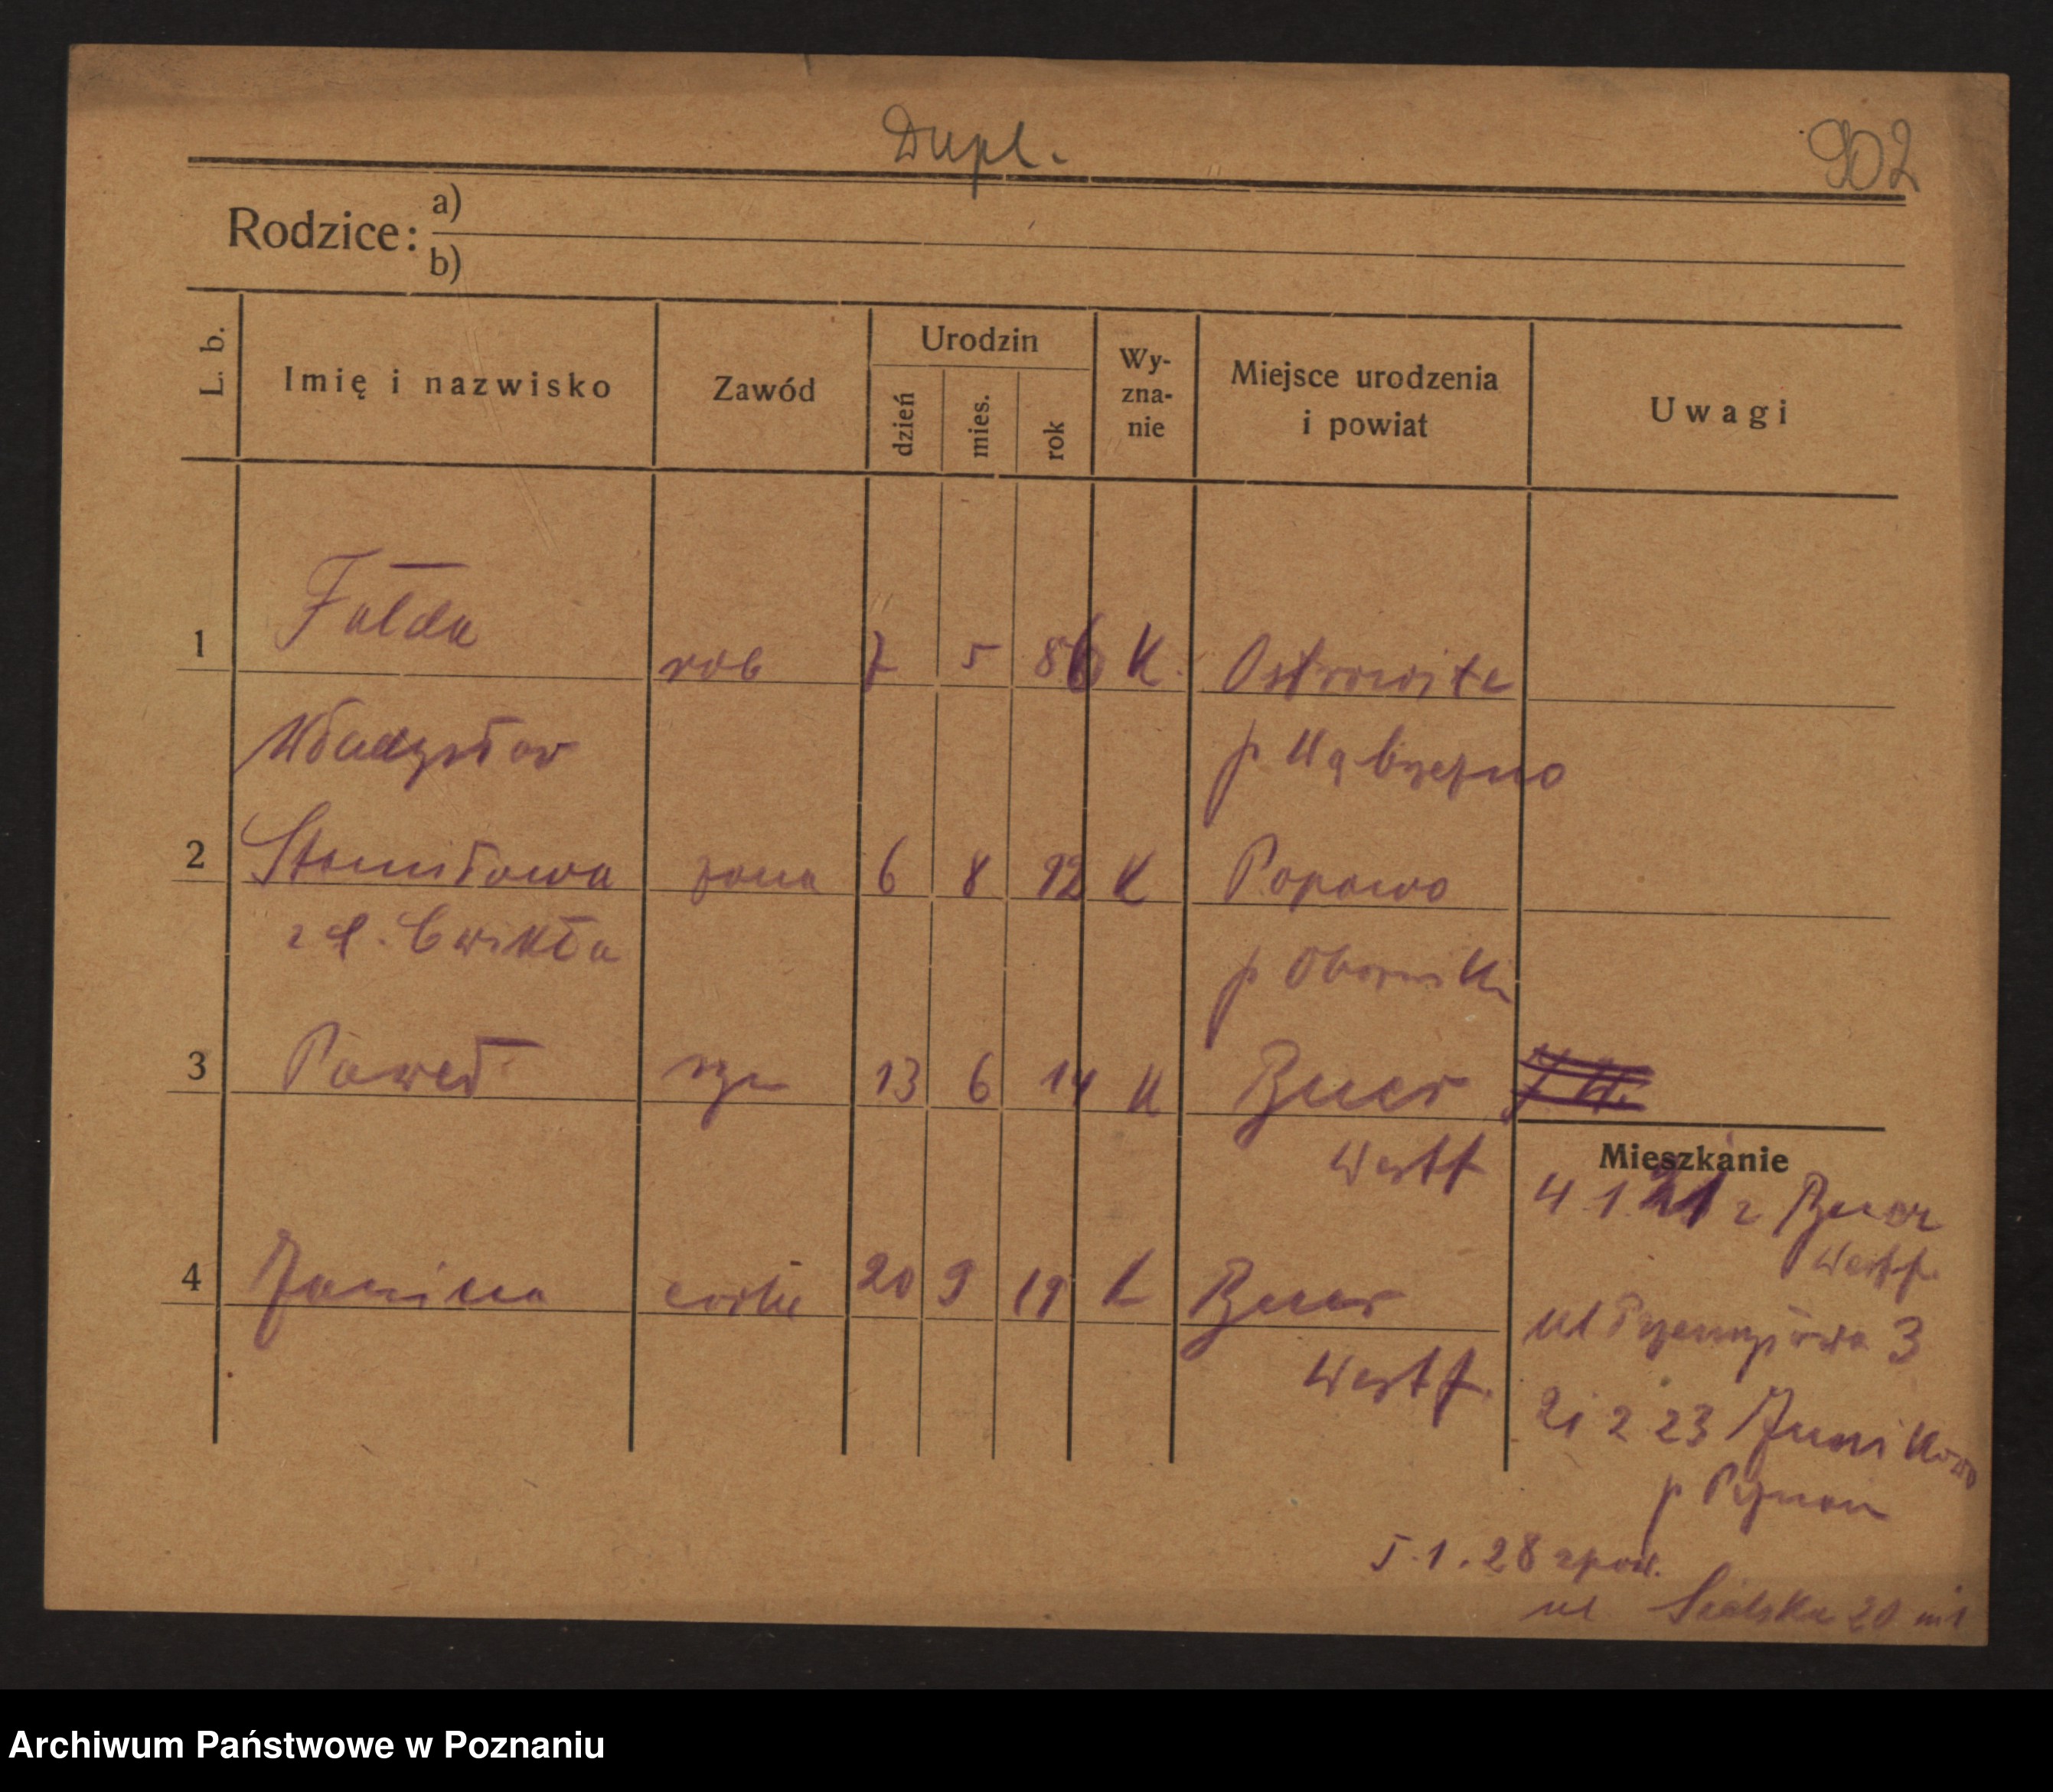 Dupl.
902
Rodzice: a)
b)
L. b. Imię i nazwisko Zawód Urodzin dzień mies. rok Wy-zna-nie Miejsce urodzenia i powiat Uwagi
Fałda
1 rob 7 5 86 K. Ostrowite
Władysław p Wąbrzeźno
2 Stanisława żona 6 8 92 K Popowo
zd. Cwikła p Oborniki
3 Paweł syn 13 6 14 K Buer
Westf
Mieszkanie
4 1 21 z Buer
Westf.
4 Janina córka 20 9 19 K Buer
Westf.
ul Przemysłowa 3
21 2 23 Junikowo
p Poznań
5.1.28 zpow.
ul Sielska 20 m 1
Archiwum Państwowe w Poznaniu